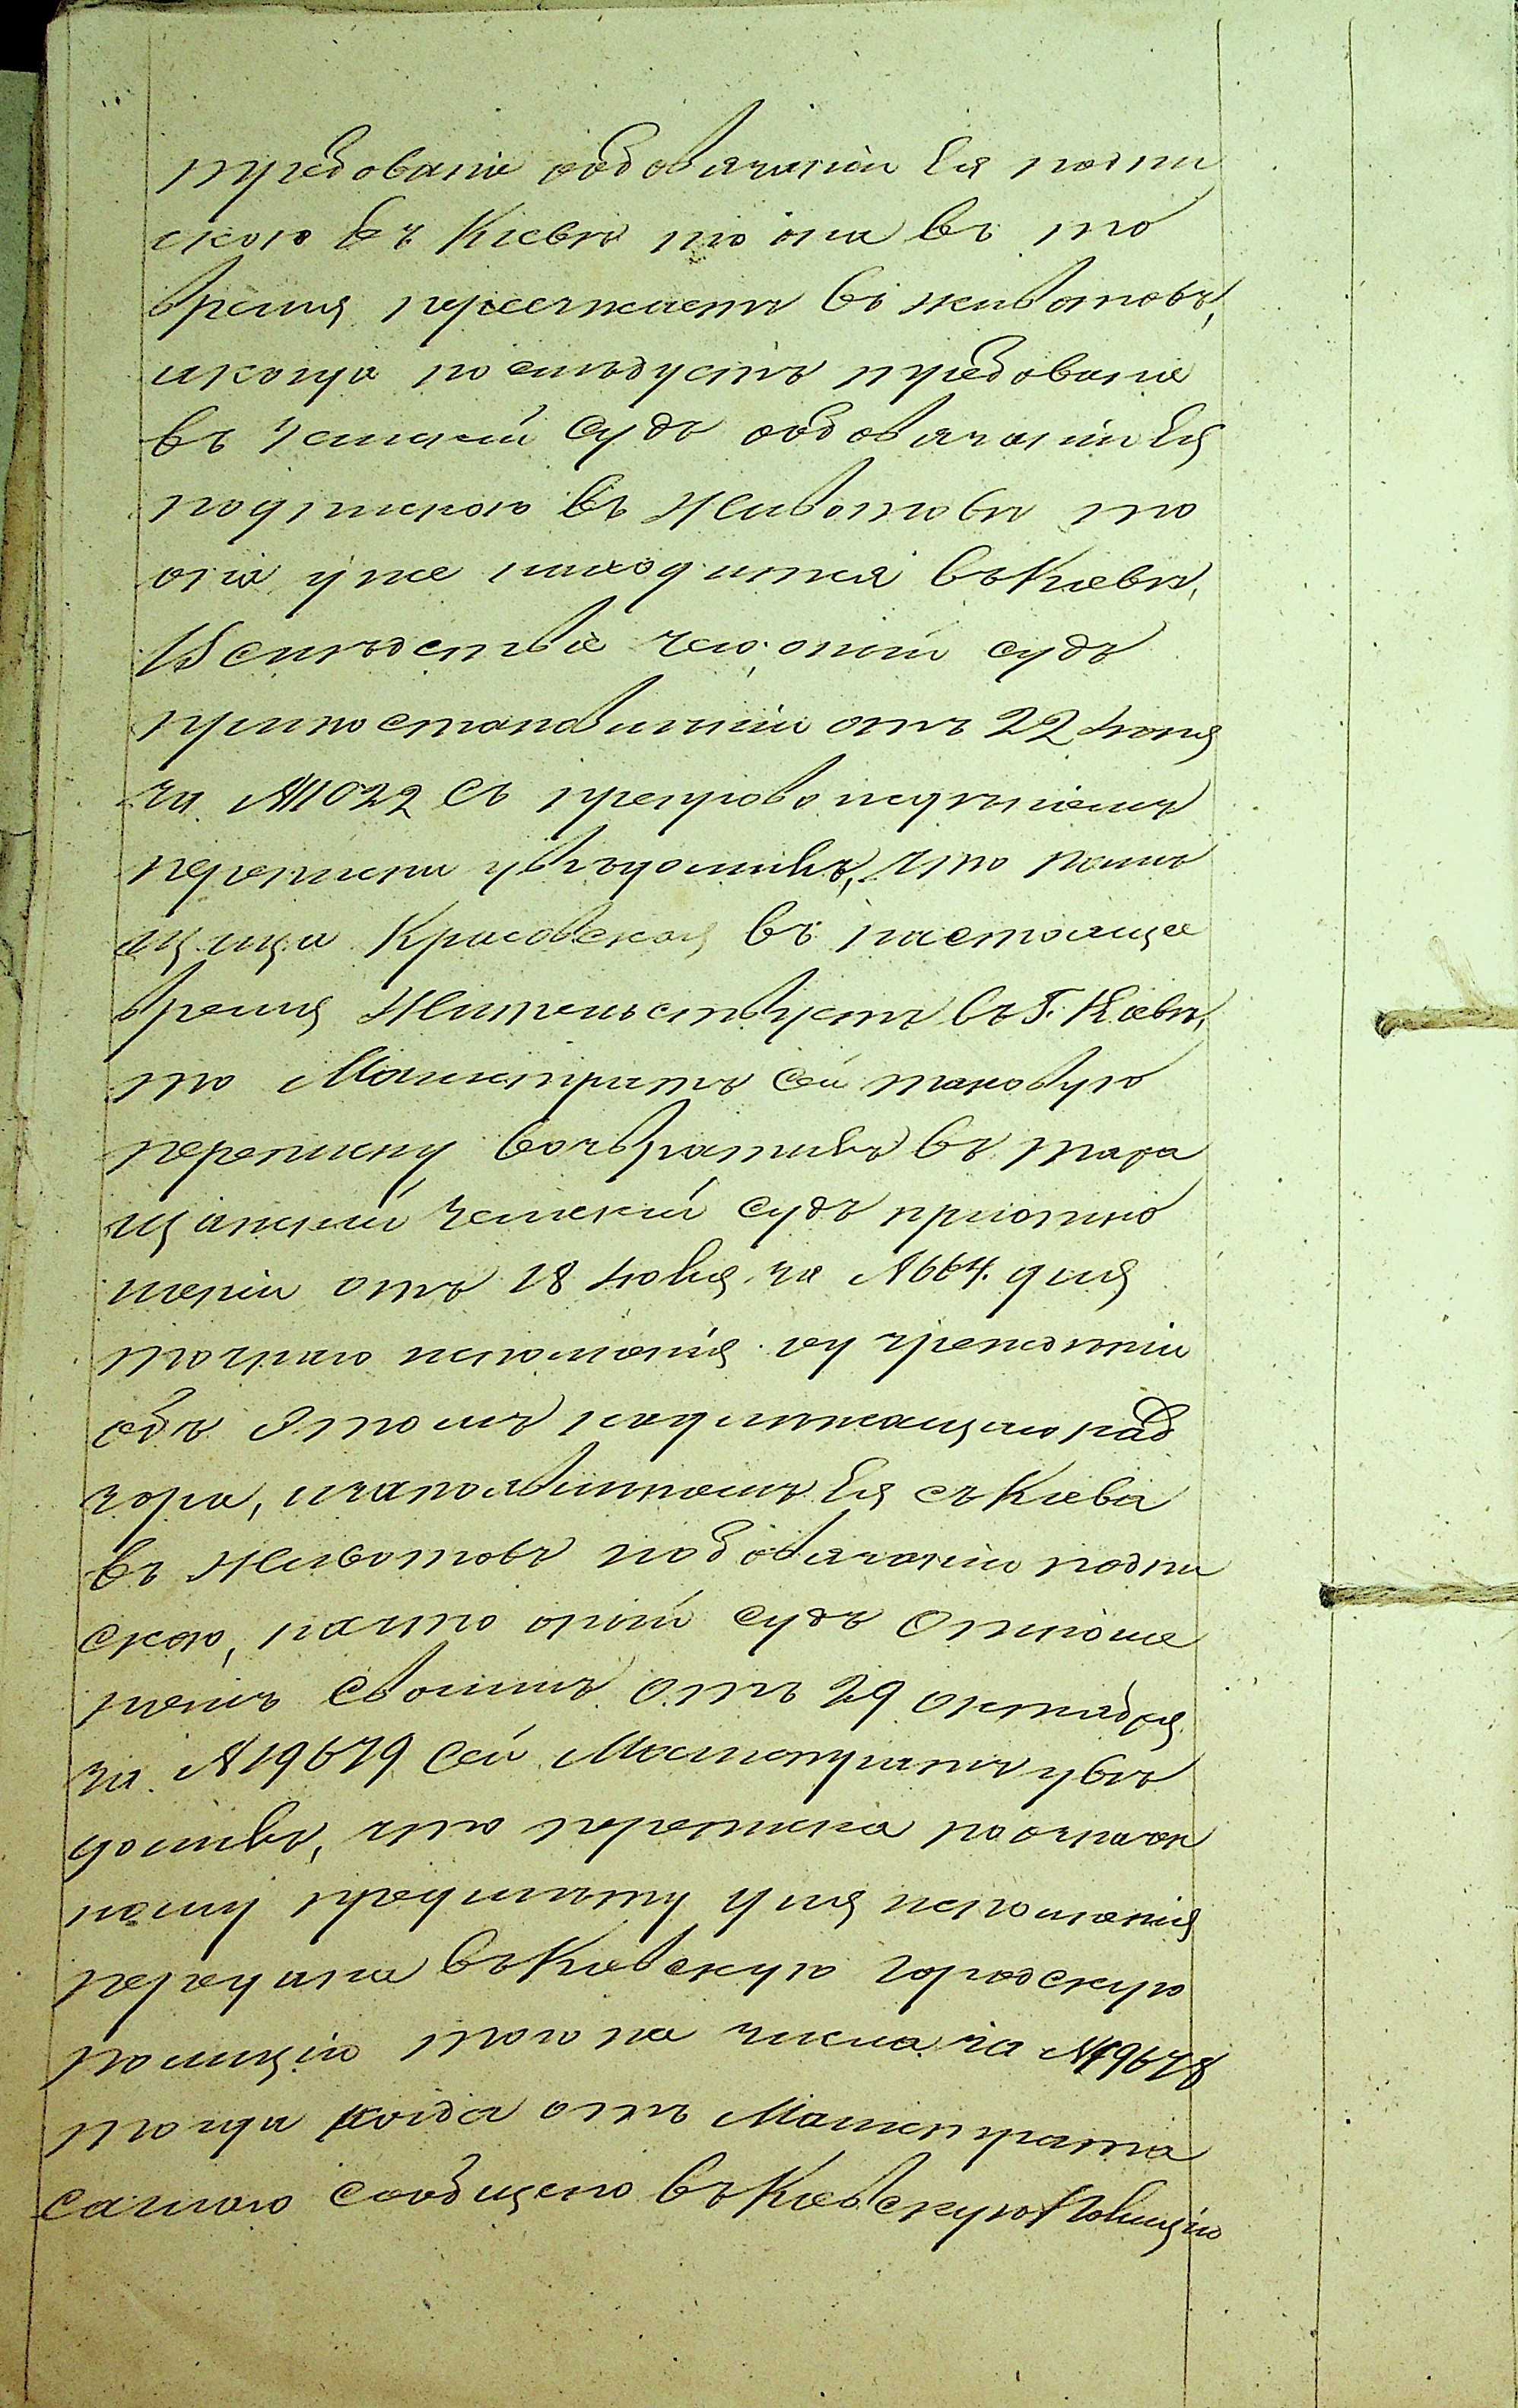 требованіе ообовязаніи Ея подпи
скою въ Кіевѣ то она въ то
время переезжаетъ въ животовъ,
икогда последуетъ требованіе
въ земскій судъ ообовязаніи Ея
подпискою въ Животовѣ то
она уже находится въ Кіевѣ,
Вслѣдствіе чего оный судъ
приотановленіи отъ 22 Іюня
за №11022 съ препровожденіемъ
переписки увѣдомивъ, что поме
щица Красовская въ настоящее
время Жительствуетъ въ Г. Кіевѣ,
то Магистратъ сей таковую
переписку возвративъ въ тара
щанскій земскій судъ приотно
шеніи отъ 18 Іюля за №664. для
точнаго исполненія оучрежденіи
объ Этомъ надлежащаго над
зора, изаполвленіемъ Ея съ Кіева
въ Животовъ пообовязаніи подпи
скою, начто оный судъ Отноше
ніемъ своимъ отъ 29 октября
за №19679 сей Магистратъ увѣ
домивъ, что переписка поозначен
ному предмету для исполненія
передана въ Кіевскую городскую
полицію того же числа за №19678
тогда когда отъ Магистрата
самого сообщено въ Кіевскую Полицію